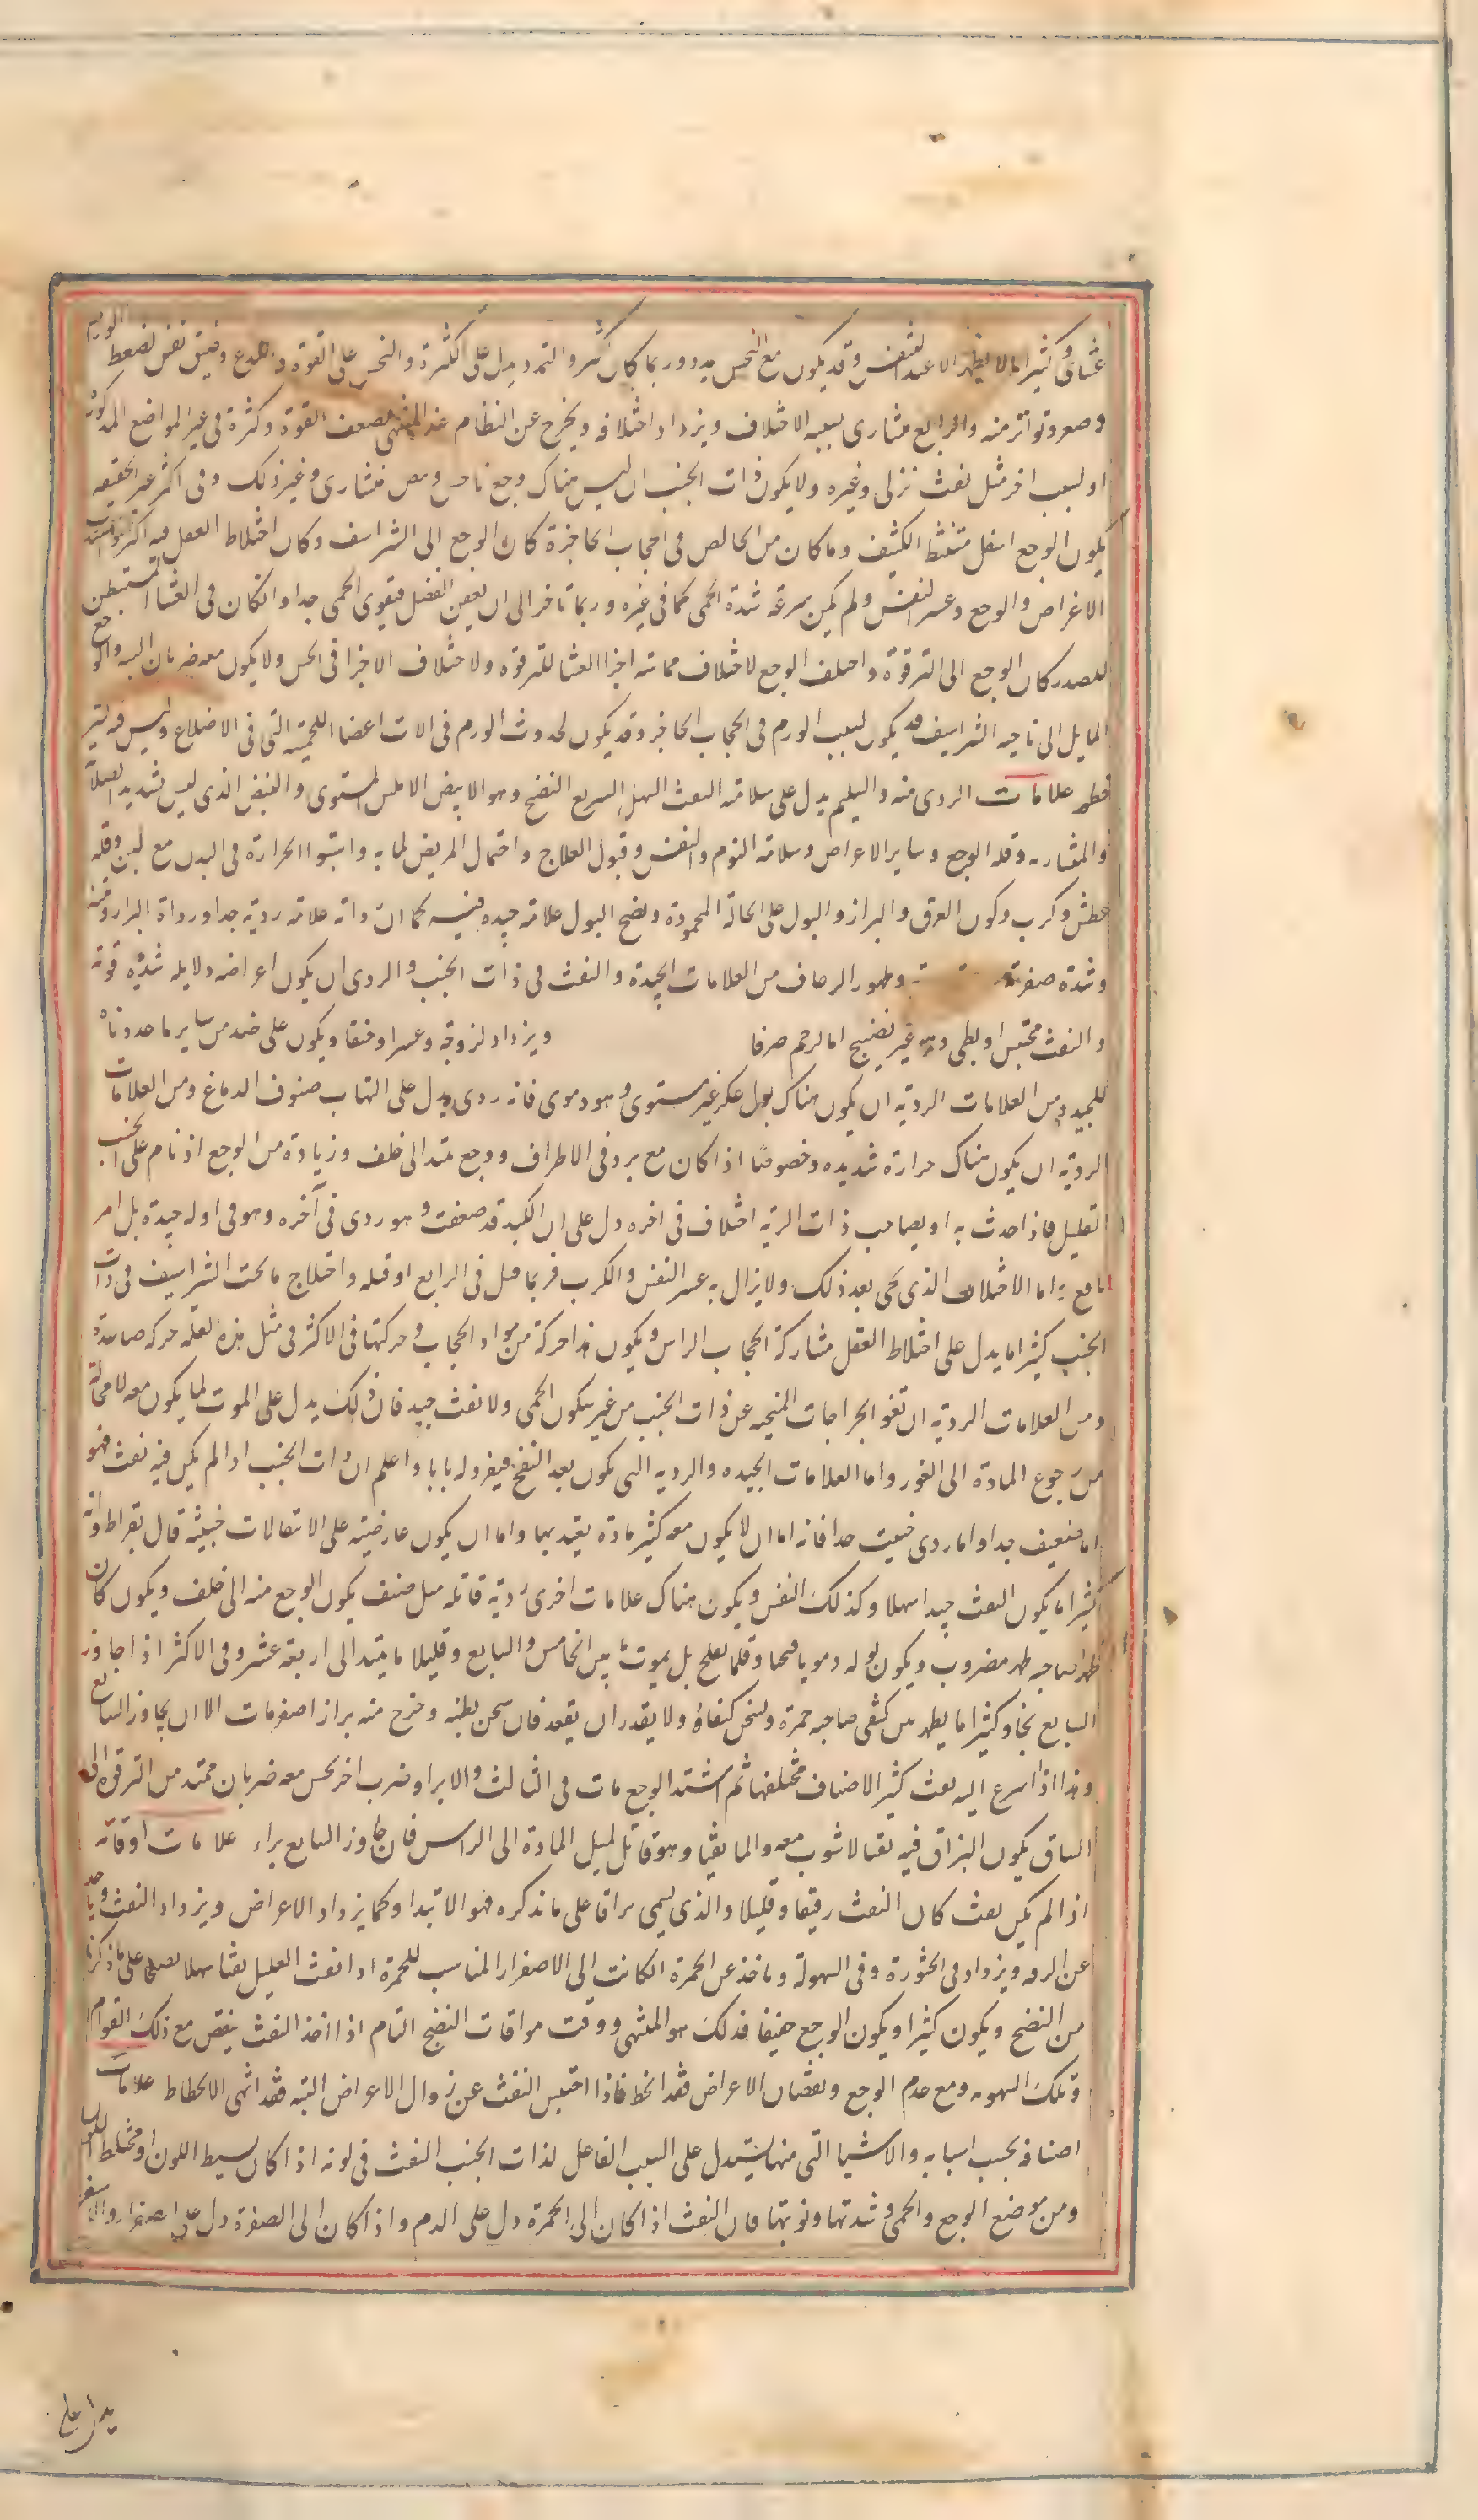 غشائى وكثيرا ما لا يظهر الا عند التنفس وقد يكون مع النخس تمدد وربما كان اكثر والتمدد يدل على الكثرة والنخس على القوة وضيق نفس لضغط الورم
وصغر وتواتر منه والرابع منشارى بسببه الاختلاف ويزداد اختلافه ويخرج عن النظام عند المنتهى لضعف القوة وكثرة فى غير المواضع المذكورة
او لسبب اخر مثل نفث نزلى وغيره ولا يكون ذات الجنب ان ليس هناك وجع ناخس ونبض منشارى وغير ذلك وفى اكثر غير الحقيقه
يكون الوجع اسفل مشط الكتف وما كان من الخالص فى الحجاب الحاجزة كان الوجع الى الشراسف وكان اختلاط العقل فيه اكثر
الاعراض والوجع وعسر النفس ولم يكن سرعة شدة الحمى كما فى غيره وربما تاخر الى ان يعفن الفضل فيقوى الحمى جدا وان كان فى الغشا المستبطن
للصدر كان الوجع الى الترقوة واختلف الوجع لاختلاف مماسة اجزا الغشا للترقوه ولاختلاف الاجزا فى الحس ولا يكون معه ضربان البته والوجع
المايل الى ناحيه الشراسيف قد يكون لسبب الورم فى الحجاب الحاجز وقد يكون لحدوث الورم فى الات اعضا اللحميه التى فى الاضلاع وليس فيه كثير
خطر علامات الردى منه والسليم يدل على سلامته النفث السهل السريع النضج وهو الابيض الاملس المستوى والنبض الذى ليس بشديد الصلابة
والمنشاريه وقله الوجع وساير الاعراض وسلامة النوم والنفس وقبول العلاج واحتمال المريض لما به واستوا الحرارة فى البدن مع لين وقله
عطش وكرب وكون العرق والبراز والبول على الحالة المحمودة ونضج البول علامة جيده فيه كما ان رداته علامة ردية جدا ورداة البراز ونتنه
وشدة صفرته وظهور الرعاف من العلامات الجيدة والنفث فى ذات الجنب والردى ان يكون اعراضه ودلايله شديده قوته
والنفث محتبس او بطى وهو غير نضيج اما احمر صرفا ويزداد لزوجة وعسرا وخنقا ويكون على ضد من ساير ما عددناه
للجيد ومن العلامات الردية ان يكون هناك بول عكر غير مستوى وهو دموى فانه ردى يدل على التهاب صنوف الدماغ ومن العلامات
الردية ان يكون هناك حرارة شديده وخصوصا اذا كان مع برد فى الاطراف ووجع يمتد الى خلف وزيادة من الوجع اذ نام على الجنب
العليل فاذا حدث به او بصاحب ذات الرية اختلاف فى اخره دل على ان الكبد قد ضعفت وهو ردى فى آخره وهو فى اوله جيدة بل امر
نافع به اما الاختلاف الذى يجى بعد ذلك ولا يزال به عسر النفس والكرب فربما قتل فى الرابع او قبله واختلاج ما تحت الشراسيف فى ذات
الجنب كثيرا ما يدل على اختلاط العقل مشاركة الحجاب الراس ويكون هذا حركة من مواد الحجاب وحركتها فى الاكثر فى مثل هذه العله حركه صاعدة
ومن العلامات الردية ان تغور الجراحات المنجيه عن ذات الجنب من غير سكون الحمى ولا نفث جيد فان ذلك يدل على الموت لما يكون معه لا محالة
من رجوع المادة الى الغور واما العلامات الجيده والرديه التى تكون بعد النضج فيفرد له بابا واعلم ان ذات الجنب اذا لم يكن فيه نفث فهو
اما ضعيف جدا واما ردى خبيث جدا فانه اما ان لا يكون معه كثير مادة يعتد بها واما ان يكون عارضيته على الانتقالات خبيثة قال بقراط وانه
كثيرا ما يكون النفث جيدا سهلا وكذلك النفس ويكون هناك علامات اخرى ردية قاتله مثل صنف يكون الوجع منه الى خلف ويكون كان
ظهر صاحبه ظهر مضروب ويكون بوله دمويا قيحيا وقلما يفلح بل يموت ما بين الخامس والسابع وقليلا ما يمتد الى اربعة عشر وفى الاكثر اذا جاوز
السابع نجا وكثيرا ما يظهر بين كتفى صاحبه حمرة وتسخن كتفاه ولا يقدر ان يقعد فان سخن بطنه وخرج منه براز اصفر مات الا ان يجاوز السابع
وهذا اذا اسرع اليه نفث كثير الاصناف مختلفها ثم اشتد الوجع مات فى الثالث والا برا وضرب اخر يحس معه ضربان ممتد من الترقوة الى
الساق يكون البزاق فيه نقيا لا شوب معه والما نقيا وهو قاتل لميل المادة الى الراس فان جاوز السابع براء علامات اوقاته
اذا لم يكن نفث كان النفث رقيقا وقليلا والذى يسمى بزاقا على ما نذكره فهو الابتدا وكما يزداد الاعراض ويزداد النفث وياخذ
عن الرقه ويزداد فى الخثورة وفى السهولة وياخذ عن الحمرة ان كانت الى الاصفرار المناسب للحمرة اذا نفث العليل نفثا سهلا نضيجا على ما ذكرنا
من النضج ويكون كثيرا ويكون الوجع خفيفا فذلك هو المنتهى ووقت موافات النضج التام اذا اخذ النفث ينقص مع ذلك القوام
وتلك السهوله ومع عدم الوجع ونقصان الاعراض فقد انحط فاذا احتبس النفث عن زوال الاعراض البته فقد انتهى الانحطاط علامات
اصنافه بحسب اسبابه والاشيا التى منها يستدل على السبب الفاعل لذات الجنب النفث فى لونه اذا كان بسيط اللون او مختلط اللون
ومن موضع الوجع والحمى وشدتها ونوبتها فان النفث اذا كان الى الحمرة دل على الدم واذا كان الى الصفرة دل على الصفراء والاشقر
يدل على